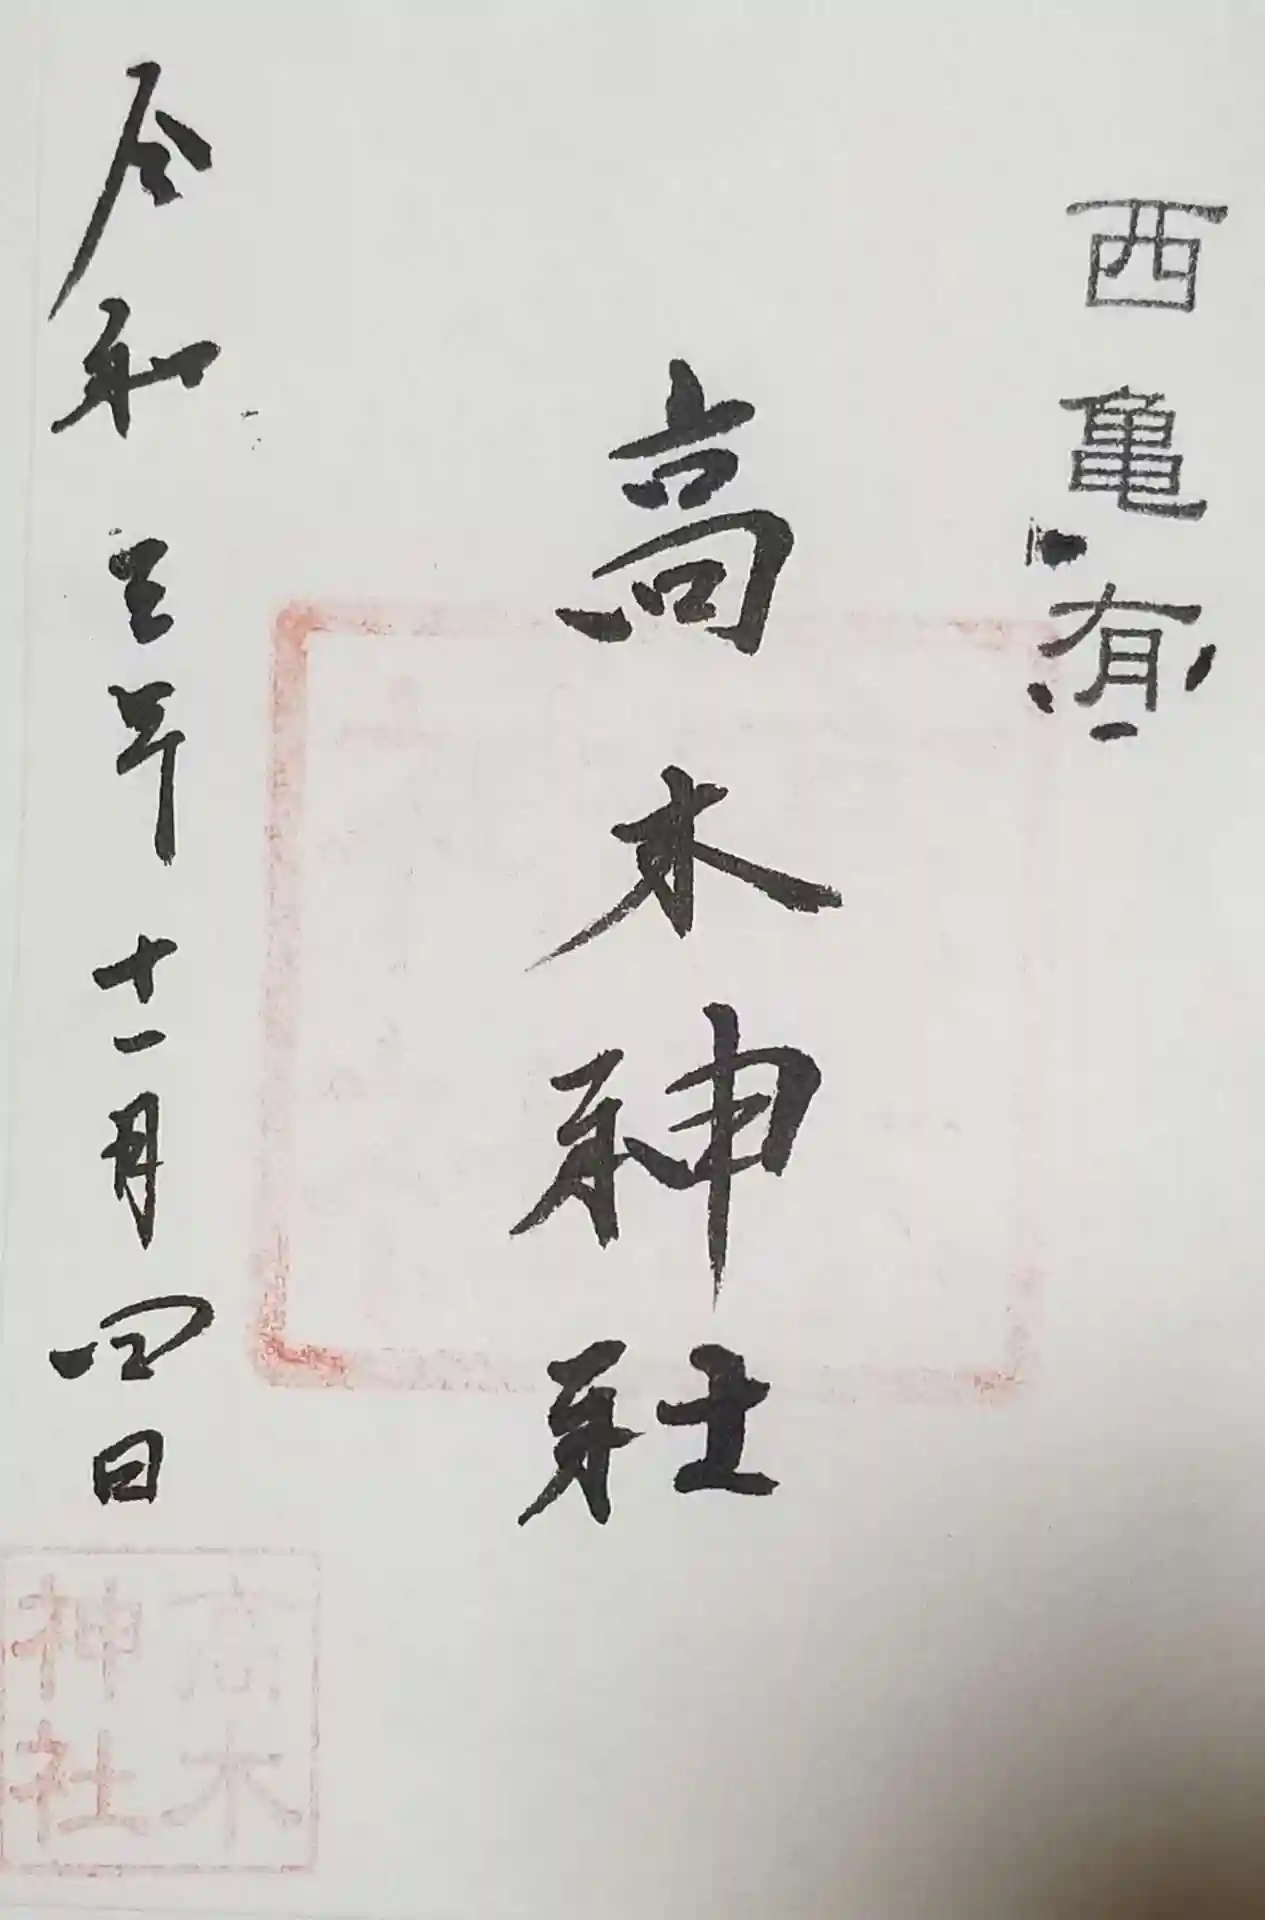 西亀有
高木神社
令和三年十一月四日
高木
神社